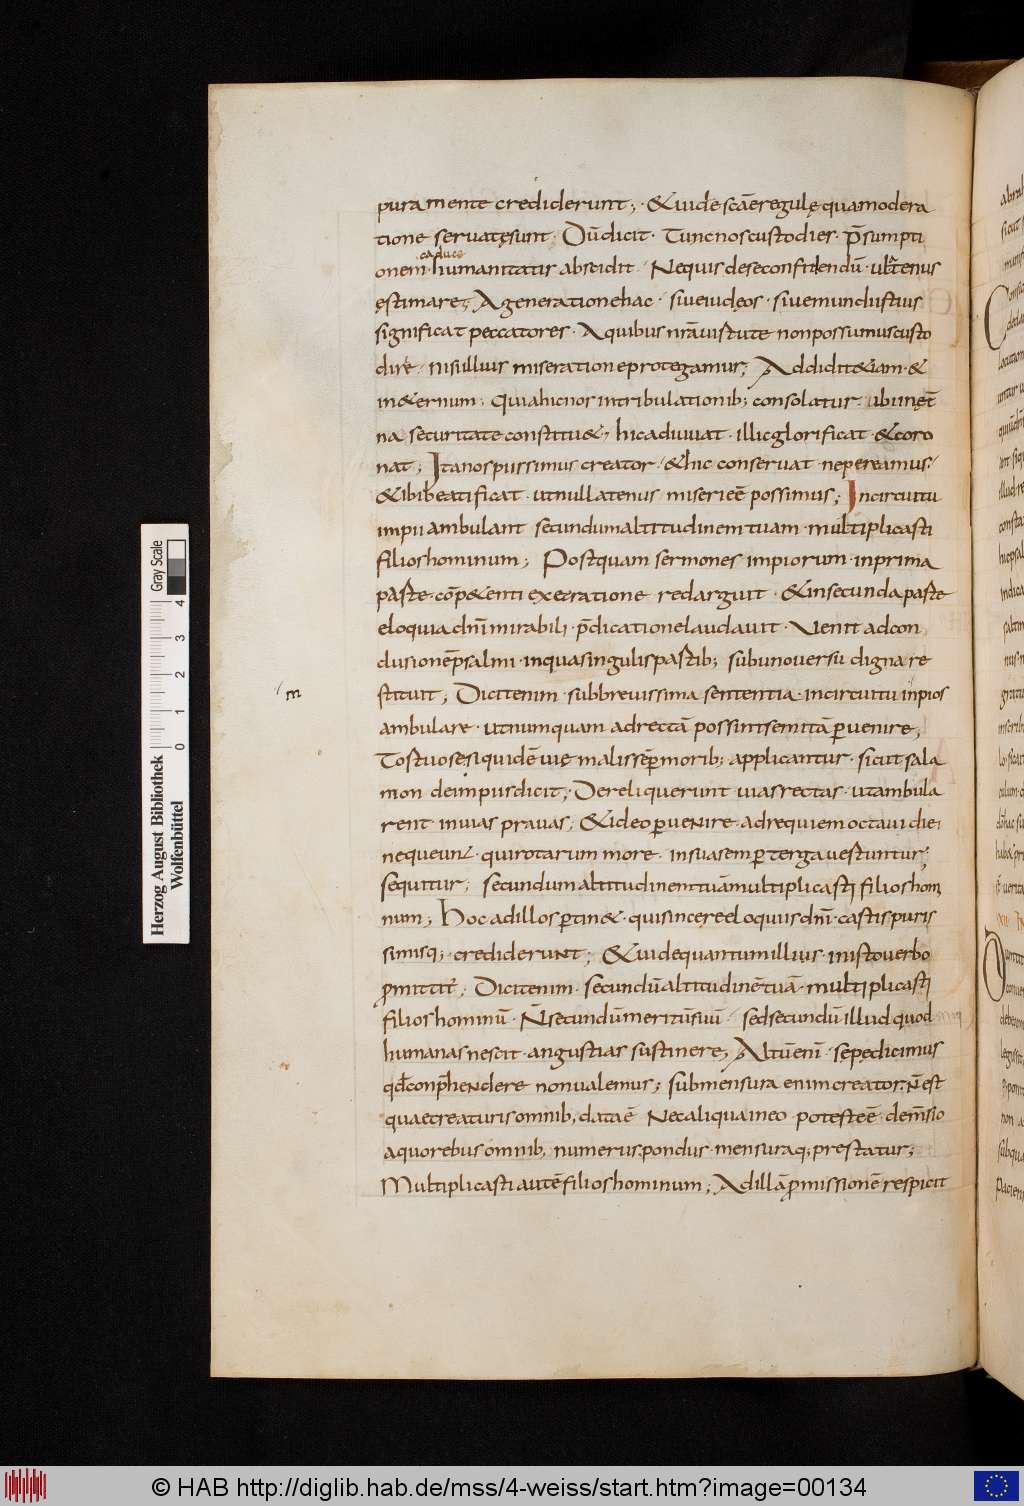 pura mente crediderunt; & uide scāe regulę qua modera
tione seruatę sunt. Dū dicit. Tunc nos custodies. p̄sumpti
caduce
onem humanitatis abscidit. Nequis de se confitendū. ul&#772;tenus
ęstimaret; A generatione hac. siue iudęos. siue mundi istius
significat peccatores. A quibus nrā uirtute non possumus custo
diri. nisi illius miseratione protegamur; Addidit &iam. &
in&ernum. quia hic nos in tribulationib; consolatur. ibi in ęt̄
na securitate constitu&; hic adiuuat. illic glorificat. & coro
nat; Ita nos piissimus creator. & hic conseruat ne pereamus.
& ibi beatificat. ut nullatenus miseri eē possimus; In circuitu
impii ambulant secundum altitudinem tuam multiplicasti
filios hominum; Postquam sermones impiorum. in prima
parte. cōp&enti execratione redarguit. & in secunda parte
eloquia dn̄i mirabili p̄dicatione laudauit. Venit ad con
clusionē psalmi. in qua singulis partib; sub uno uersu digna re
m
stituit; Dicit enim. sub breuissima sententia. in circuitu inpios
ambulare. ut numquam ad rectā possint semitā puenire;
Tortuose siquidē uię malis sēp morib; applicantur. sicut sala
mon de impiis dicit; Dereliquerunt uias rectas. ut ambula
rent in uias prauas; & ideo puenire ad requiem octaui diei
nequeunt. qui rotarum more. in sua semp terga uertuntur;
sequitur; secundum altitudinem tuā multiplicasti filios homi
num; Hoc ad illos ptin&. qui sincere eloquiis dn̄i. castis puris
simisq; crediderunt; & uide quantum illius. in isto uerbo
pmittit̄; Dicit enim. secundū altitudinē tuā. multiplicasti
filios hominū. N̄ secundū meritū suū. sed secundū illud quod
humanas nescit angustias sustinere; Altū enī. sępę dicimus
qd̄ conp̄hendere non ualemus; sub mensura enim creator. n̄ est
quae creaturis omnib; data ē. Nec aliqua in eo potest eē. dem̄sio
a quo rebus omnib; numerus. pondus. mensuraq; prestatur;
Multiplicasti autē filios hominum; Ad illā pmissionē respicit
Herzog August Bibliothek
Wolfenbüttel
0 1 2 3 4
Gray Scale
© HAB http://diglib.hab.de/mss/4-weiss/start.htm?image=00134